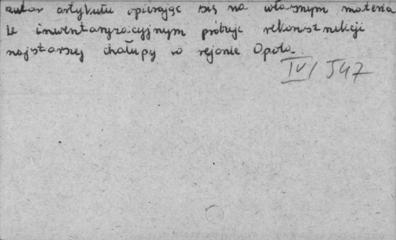 autor artykułu opierając się na własnym materia
le inwentaryzacyjnym próbuje rekonstrukcji
najstarszej chałupy w rejonie Opola.
IV/547